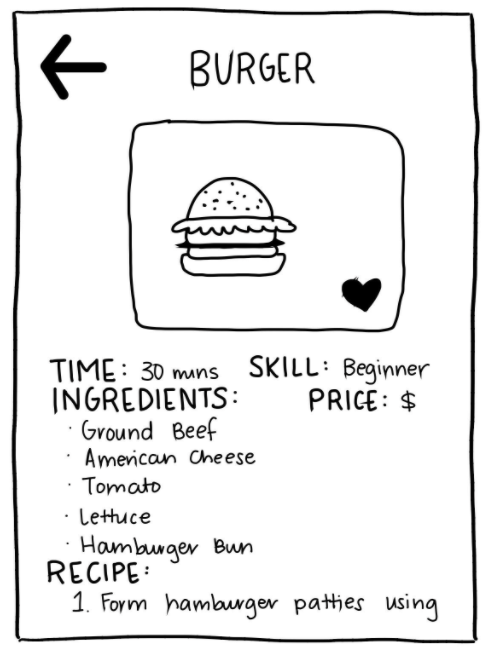 BURGER
TIME: 30 mins SKILL: Beginner
INGREDIENTS: PRICE: $
· Ground Beef
· American Cheese
· Tomato
· Lettuce
· Hamburger Bun
RECIPE:
1. Form hamburger patties using